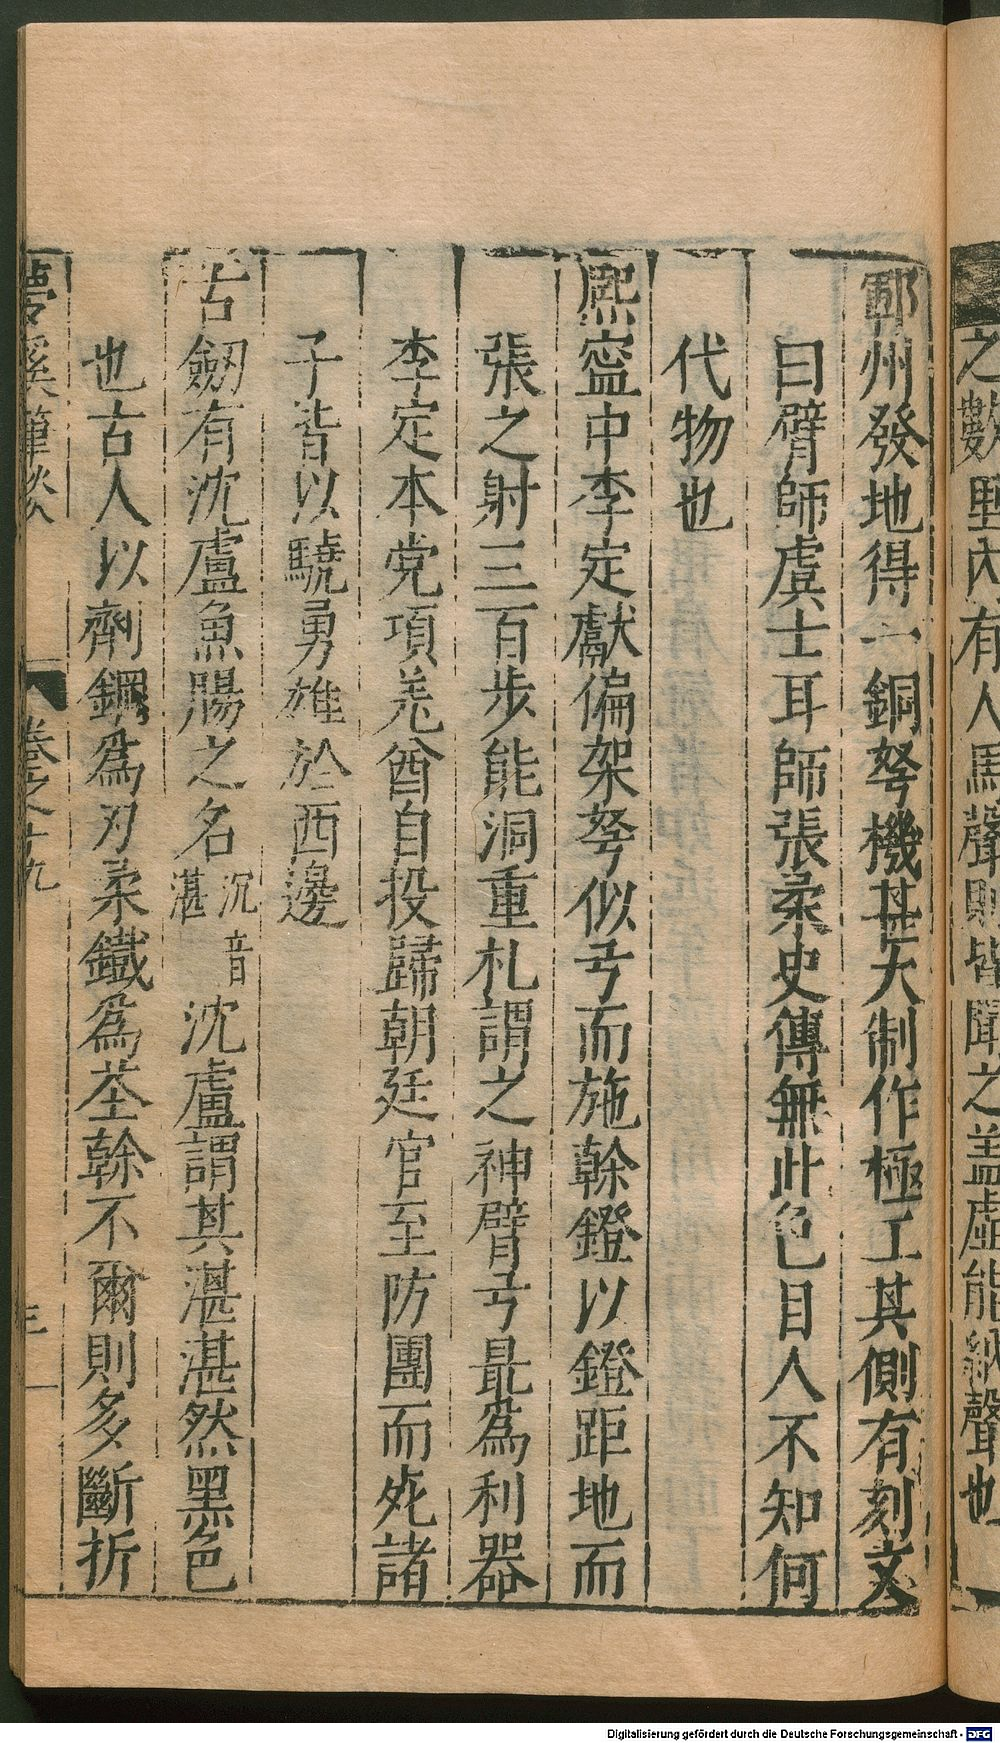 之數里內有人馬聲則皆聞之盖虛能納聲也
鄆州發地得一銅弩機甚大制作極工其側有刻文
曰臂師虞士耳師張柔史傳無此色目人不知何
代物也
熙寍中李定獻偏架弩似弓而施榦鐙以鐙距地而
張之射三百步能洞重札謂之神臂弓最爲利器
李定本党項羗酋自投歸朝廷官至防團而死諸
子皆以驍勇雄於西邊
古劒有沈盧魚腸之名沉音湛沈盧謂其湛湛然黑色
也古人以劑鋼爲刃柔鐵爲莖榦不爾則多斷折
夢溪筆談 卷之十九 三
Digitalisierung gefördert durch die Deutsche Forschungsgemeinschaft - DFG